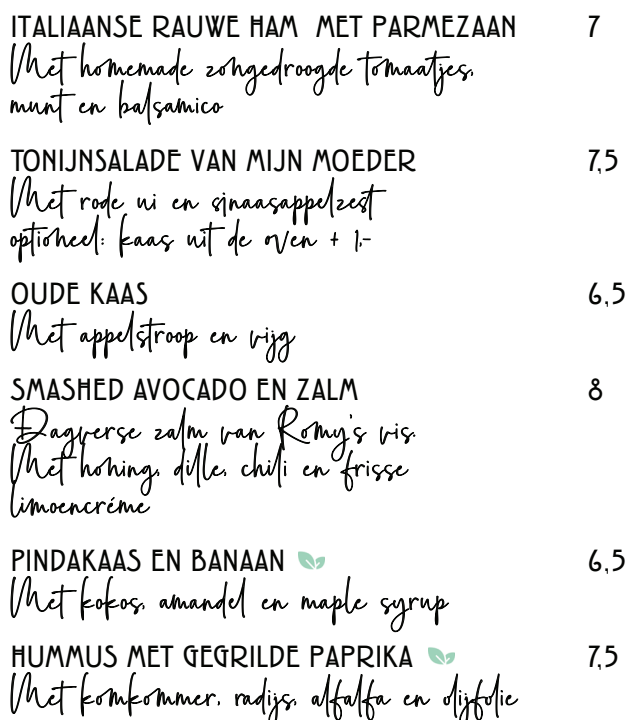 ITALIAANSE RAUWE HAM MET PARMEZAAN 7
Met homemade zongedroogde tomaatjes,
munt en balsamico
TONIJNSALADE VAN MIJN MOEDER 7,5
Met rode ui en sinaasappelzest
optioneel: kaas uit de oven + 1,-
OUDE KAAS 6,5
Met appelstroop en vijg
SMASHED AVOCADO EN ZALM 8
Dagverse zalm van Romy's vis.
Met honing, dille, chili en frisse
limoencréme
PINDAKAAS EN BANAAN 6,5
Met kokos, amandel en maple syrup
HUMMUS MET GEGRILDE PAPRIKA 7,5
Met komkommer, radijs, alfalfa en olijfolie